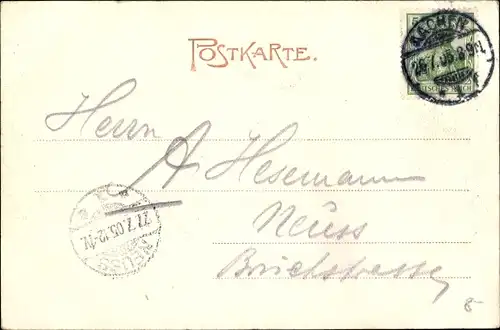 POSTKARTE.
AACHEN
26.7.05.8-9N.
5
DEUTSCHES REICH
Herrn
A Hesemann
Neuss
27.7.05.12-1N.
NEUSS
8